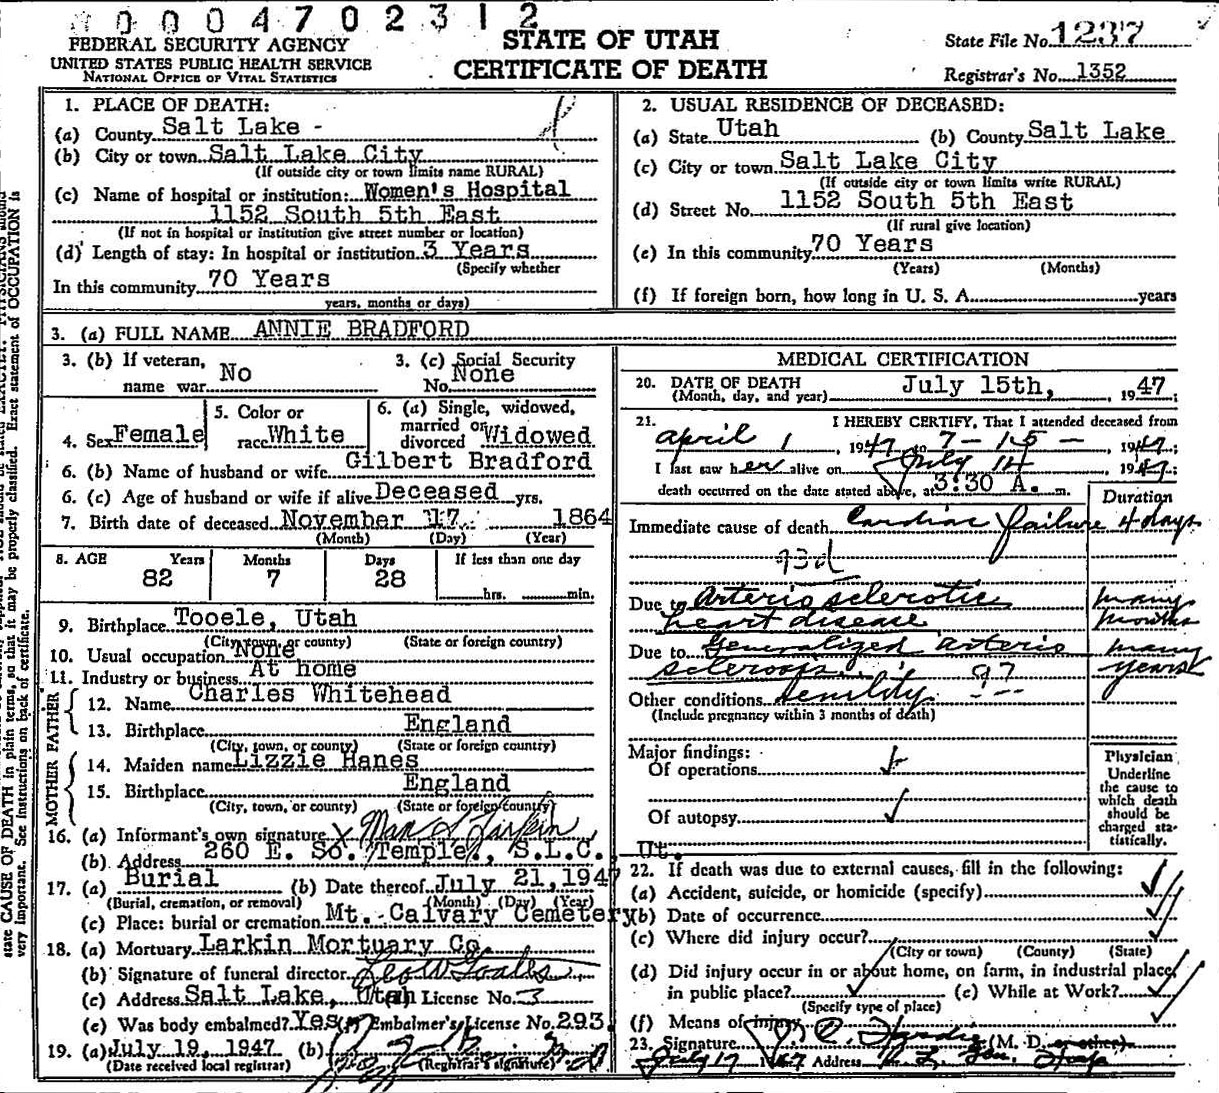 0 0 0 4 7 0 2 3 1 2
FEDERAL SECURITY AGENCY
UNITED STATES PUBLIC HEALTH SERVICE
NATIONAL OFFICE OF VITAL STATISTICS
STATE OF UTAH
CERTIFICATE OF DEATH
State File No. 1237
Registrar's No. 1352
1. PLACE OF DEATH:
(a) County Salt Lake -
(b) City or town Salt Lake City
(If outside city or town limits name RURAL)
(c) Name of hospital or institution: Women's Hospital
1152 South 5th East
(If not in hospital or institution give street number or location)
(d) Length of stay: In hospital or institution 3 Years
(Specify whether
In this community 70 Years
years, months or days)
2. USUAL RESIDENCE OF DECEASED:
(a) State Utah (b) County Salt Lake
(c) City or town Salt Lake City
(If outside city or town limits write RURAL)
(d) Street No. 1152 South 5th East
(If rural give location)
(e) In this community 70 Years
(Years) (Months)
(f) If foreign born, how long in U. S. A. years
3. (a) FULL NAME ANNIE BRADFORD
3. (b) If veteran, name war No
3. (c) Social Security No. None
4. Sex Female
5. Color or race White
6. (a) Single, widowed, married or divorced Widowed
6. (b) Name of husband or wife Gilbert Bradford
6. (c) Age of husband or wife if alive Deceased yrs.
7. Birth date of deceased November 17 1864
(Month) (Day) (Year)
8. AGE Years Months Days If less than one day
82 7 28 hrs. min.
9. Birthplace Tooele, Utah
(City town, or county) (State or foreign country)
10. Usual occupation None
11. Industry or business At home
FATHER
12. Name Charles Whitehead
13. Birthplace England
(City, town, or county) (State or foreign country)
MOTHER
14. Maiden name Lizzie Hanes
15. Birthplace England
(City, town, or county) (State or foreign country)
16. (a) Informant's own signature X Larkin
(b) Address 260 E. So. Temple., S.L.C., Ut.
17. (a) Burial (b) Date thereof July 21, 1947
(Burial, cremation, or removal) (Month) (Day) (Year)
(c) Place: burial or cremation Mt. Calvary Cemetery
18. (a) Mortuary Larkin Mortuary Co.
(b) Signature of funeral director
(c) Address Salt Lake, Utah License No. 3
(e) Was body embalmed? Yes (f) Embalmer's License No. 293
19. (a) July 19, 1947 (b)
(Date received local registrar) (Registrar's signature)
MEDICAL CERTIFICATION
20. DATE OF DEATH July 15th, 1947;
(Month, day, and year)
21. I HEREBY CERTIFY, That I attended deceased from
April 1, 1947 to 7-15- 1947
I last saw her alive on July 14, 1947;
death occurred on the date stated above, at 3:30 A. m.
Duration
Immediate cause of death Cardiac failure 4 days
93d
Due to Arterio sclerotic many
heart disease months
Due to Generalized arterio many
sclerosis 97 years
Other conditions Senility
(Include pregnancy within 3 months of death)
Major findings:
Of operations
Of autopsy
Physician
Underline
the cause to
which death
should be
charged sta-
tistically.
22. If death was due to external causes, fill in the following:
(a) Accident, suicide, or homicide (specify)
(b) Date of occurrence
(c) Where did injury occur?
(City or town) (County) (State)
(d) Did injury occur in or about home, on farm, in industrial place,
in public place? (e) While at Work?
(Specify type of place)
(f) Means of injury
23. Signature (M. D. or other)
July 17 1947 Address
state CAUSE OF DEATH in plain terms, so that it may be properly classified. Exact statement of OCCUPATION is
very important. See instructions on back of certificate.